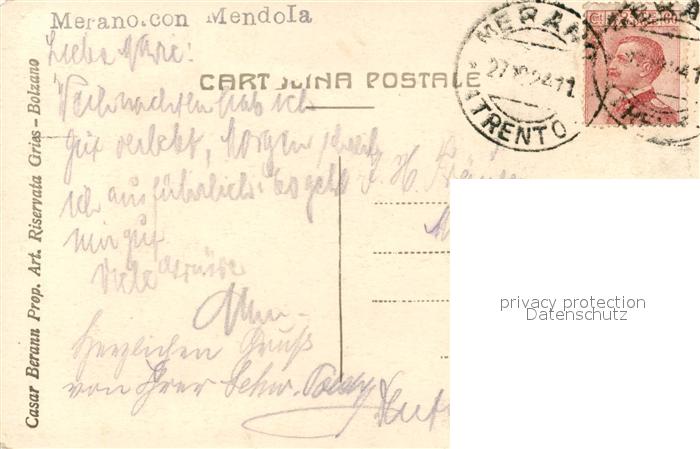 Merano.con Mendola
Liebe
CARTOLINA POSTALE
MERANO
27 XII 24 11
TRENTO
Weihnachten hab ich
gut verlebt, Morgen schreib
ich ausführlich. Es geht
mir gut.
Viele Grüsse
Herzlichen Gruß
von Ihrer Schw.
Casar Berann Prop. Art. Riservata Gries - Bolzano
privacy protection
Datenschutz